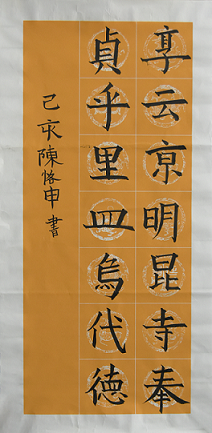 享云京明昆寺奉
貞乎里皿烏代德
己亥陳恪申書